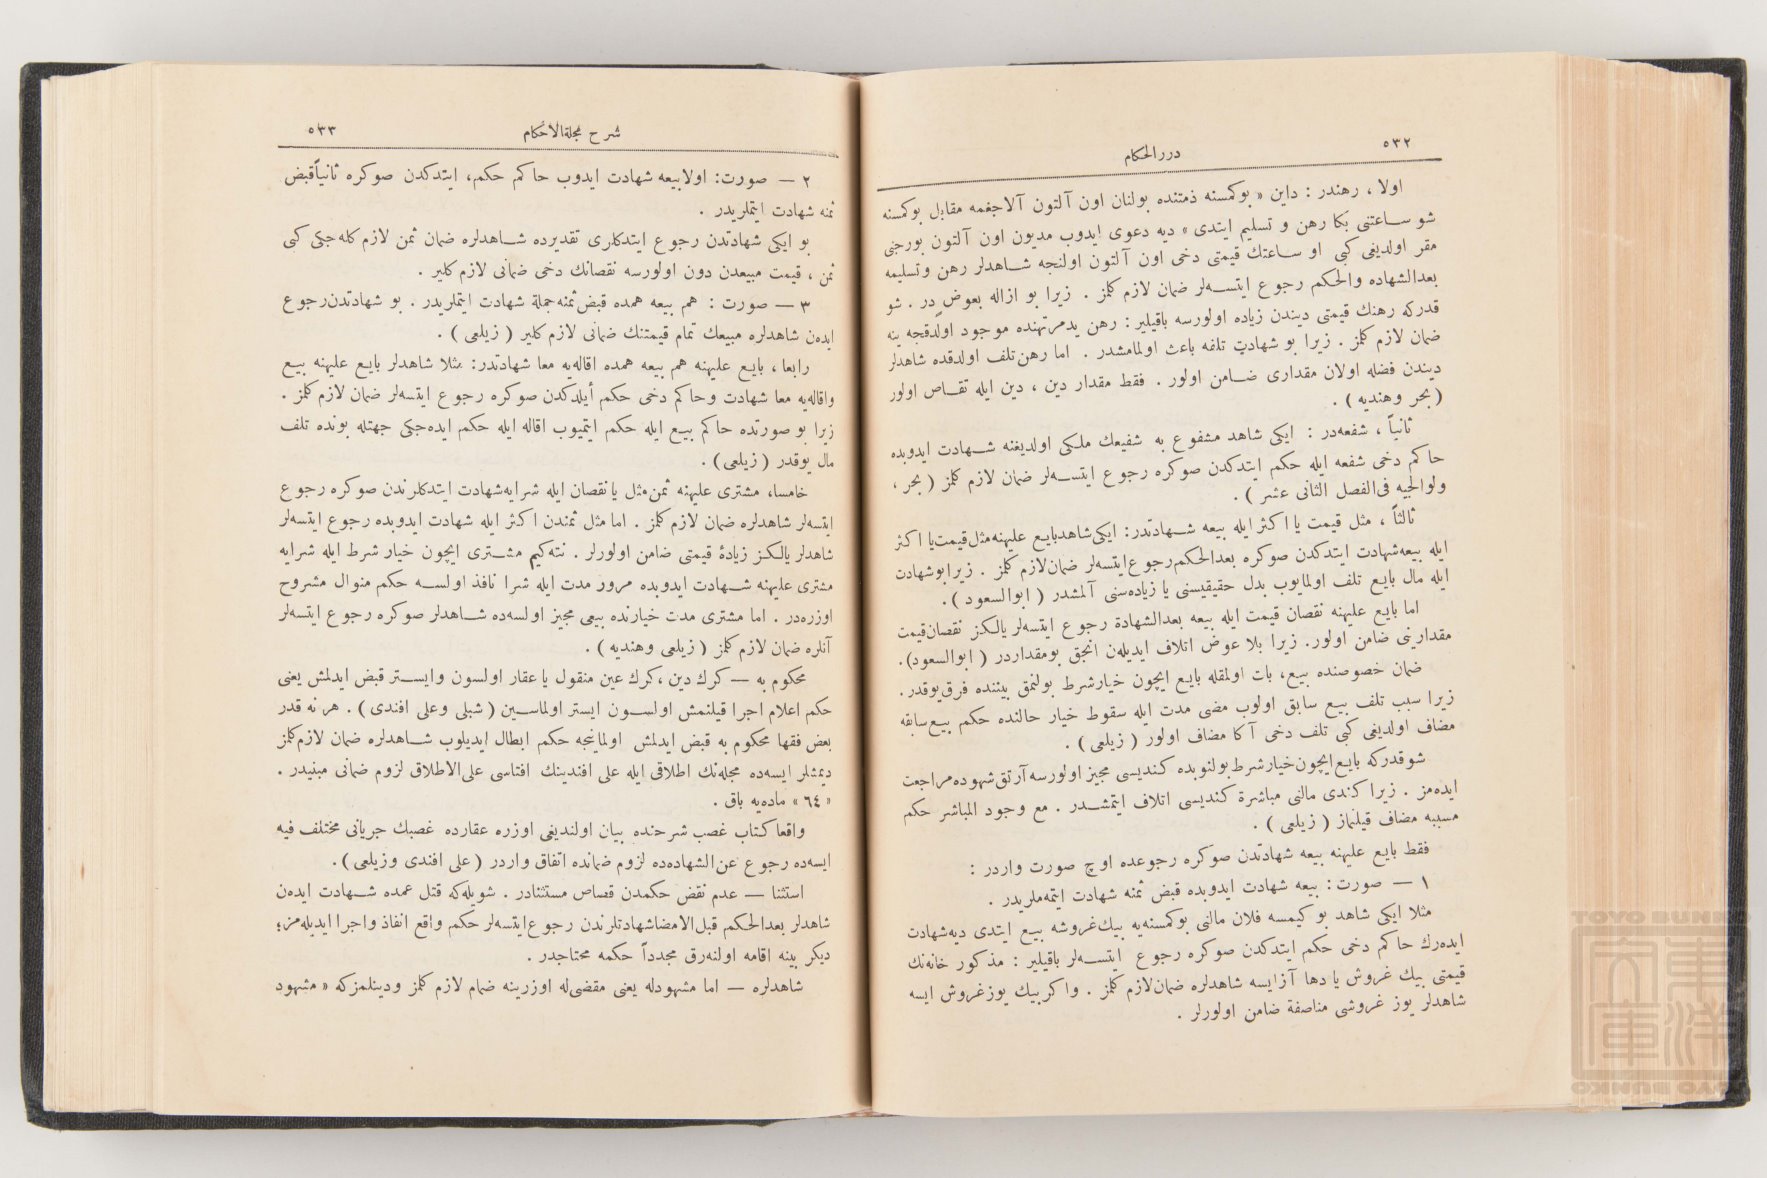 ٥٣٢
دررالحكام
اولا ، رهندر : داین « بوكمسنه ذمتنده بولنان اون آلتون آلاجغمه مقابل بوكمسنه
شو ساعتنی بكا رهن و تسليم ايتدی » ديه دعوی ايدوب مديون اون آلتون بورجنی
مقر اولديغی كبی او ساعتك قيمتی دخی اون آلتون اولنجه شاهدلر رهن وتسليمه
بعدالشهاده والحكم رجوع ايتسەلر ضمان لازم كلمز . زيرا بو ازاله بعوض در . شو
قدركه رهنك قيمتی ديندن زياده اولورسه باقيلير : رهن يدمرتهنده موجود اولدقجه ينه
ضمان لازم كلمز . زيرا بو شهادت تلفه باعث اولمامشدر . اما رهن تلف اولدقده شاهدلر
ديندن فضله اولان مقداری ضامن اولور . فقط مقدار دين ، دين ايله تقاص اولور
( بحر وهنديه ) .
ثانياً ، شفعه‌در : ايكی شاهد مشفوع به شفيعك ملكی اولديغنه شهادت ايدوبده
حاكم دخی شفعه ايله حكم ايتدكدن صوكره رجوع ايتسه‌لر ضمان لازم كلمز ( بحر ،
ولوالجيه فی‌الفصل الثانی عشر ) .
ثالثاً ، مثل قيمت يا اكثر ايله بيعه شهادتدر: ايكی شاهد بايع عليهنه مثل قيمت يا اكثر
ايله بيعه شهادت ايتدكدن صوكره بعدالحكم رجوع ايتسه‌لر ضمان لازم كلمز . زيرا بوشهادت
ايله مال بايع تلف اولمايوب بدل حقيقيسنی يا زياده‌سنی آلمشدر ( ابوالسعود ) .
اما بايع عليهنه نقصان قيمت ايله بيعه بعدالشهادة رجوع ايتسه‌لر يالكز نقصان قيمت
مقدارينی ضامن اولور. زيرا بلا عوض اتلاف ايديلەن انجق بومقداردر ( ابوالسعود).
ضمان خصوصنده بيع، بات اولمقله بايع ايچون خيارشرط بولنمق بيننده فرق يوقدر.
زيرا سبب تلف بيع سابق اولوب مضی مدت ايله سقوط خيار حالنده حكم بيع سابقه
مضاف اولديغی كبی تلف دخی آكا مضاف اولور ( زيلعی ) .
شوقدركه بايع ايچون خيارشرط بولنوبده كنديسی مجيز اولورسه آرتق شهوده مراجعت
ايده‌مز . زيرا كندی مالنی مباشرة كنديسی اتلاف ايتمشدر . مع وجود المباشر حكم
مسببه مضاف قيلنماز ( زيلعی ) .
فقط بايع عليهنه بيعه شهادتدن صوكره رجوعده اوچ صورت واردر :
١ — صورت : بيعه شهادت ايدوبده قبض ثمنه شهادت ايتمه‌ملريدر .
مثلا ايكی شاهد بو كيمسه فلان مالنی بوكمسنه‌يه بيك غروشه بيع ايتدی ديه شهادت
ايده‌رك حاكم دخی حكم ايتدكدن صوكره رجوع ايتسه‌لر باقيلير : مذكور خانه‌نك
قيمتی بيك غروش يا دها آز ايسه شاهدلره ضمان لازم كلمز . واكر بيك يوز غروش ايسه
شاهدلر يوز غروشی مناصفة ضامن اولورلر .
شرح مجلةالأحكام
٥٣٣
٢ — صورت: اولابيعه شهادت ايدوب حاكم حكم، ايتدكدن صوكره ثانياً قبض
ثمنه شهادت ايتملريدر .
بو ايكی شهادتدن رجوع ايتدكلری تقديرده شاهدلره ضمان ثمن لازم كله‌جكی كبی
ثمن ، قيمت مبيعدن دون اولورسه نقصانك دخی ضمانی لازم كلير .
٣ — صورت : هم بيعه همده قبض ثمنه جملة شهادت ايتملريدر . بو شهادتدن رجوع
ايده‌ن شاهدلره مبيعك تمام قيمتنك ضمانی لازم كلير ( زيلعی ) .
رابعا ، بايع عليهنه هم بيعه همده اقاله‌يه معا شهادتدر: مثلا شاهدلر بايع عليهنه بيع
واقاله‌يه معا شهادت وحاكم دخی حكم أيلدكدن صوكره رجوع ايتسه‌لر ضمان لازم كلمز .
زيرا بو صورتده حاكم بيع ايله حكم ايتميوب اقاله ايله حكم ايده‌جكی جهتله بونده تلف
مال يوقدر ( زيلعی ) .
خامسا، مشتری عليهنه ثمن مثل يا نقصان ايله شرايه شهادت ايتدكلرندن صوكره رجوع
ايتسه‌لر شاهدلره ضمان لازم كلمز . اما مثل ثمندن اكثر ايله شهادت ايدوبده رجوع ايتسه‌لر
شاهدلر يالكز زيادۀ قيمتی ضامن اولورلر . نته‌كيم مشتری ايچون خيار شرط ايله شرايه
مشتری عليهنه شهادت ايدوبده مرور مدت ايله شرا نافذ اولسه حكم منوال مشروح
اوزره‌در . اما مشتری مدت خيارنده بيعی مجيز اولسه‌ده شاهدلر صوكره رجوع ايتسه‌لر
آنلره ضمان لازم كلمز ( زيلعی وهنديه ) .
محكوم به — كرك دين ،كرك عين منقول يا عقار اولسون وايستر قبض ايدلمش يعنی
حكم اعلام اجرا قيلنمش اولسون ايستر اولماسين ( شبلی وعلی افندی ) . هر نه قدر
بعض فقها محكوم به قبض ايدلمش اولماينجه حكم ابطال ايديلوب شاهدلره ضمان لازم كلمز
ديمشلر ايسه‌ده مجله‌نك اطلاقی ايله علی افندينك افتاسی علی‌الاطلاق لزوم ضمانی مبنيدر .
« ٦٤ » ماده‌يه باق .
واقعا كتاب غصب شرحنده بيان اولنديغی اوزره عقارده غصبك جريانی مختلف فيه
ايسه‌ده رجوع عن‌الشهاده‌ده لزوم ضمانده اتفاق واردر ( علی افندی وزيلعی ) .
استثنا — عدم نقض حكمدن قصاص مستثنادر . شويله‌كه قتل عمده شهادت ايده‌ن
شاهدلر بعدالحكم قبل‌الامضا شهادتلرندن رجوع ايتسه‌لر حكم واقع انفاذ واجرا ايديله‌مز؛
ديكر بينه اقامه اولنه‌رق مجدداً حكمه محتاجدر .
شاهدلره — اما مشهودله يعنی مقضی‌له اوزرينه ضمان لازم كلمز ودينلمزكه « مشهود
TOYO BUNKO
東洋文庫